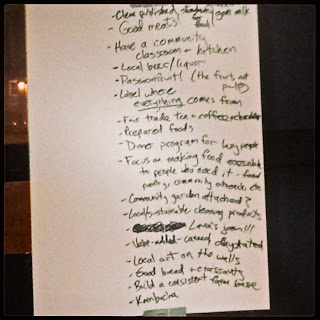 - Clear published
- Good meats! food
- Have a community
classroom + kitchen
- Local beer/liquor
- Passionfruit! (the fruit, not
pulp)
- Label where
everything comes from
- Fair trade tea + coffee +
- Prepared foods
- Dinner program for busy people
- Focus on making food accessible
to people who need it - food
pantry, community outreach etc
- Community garden attached?
- Local/sustainable cleaning products
- yarn!!!
- Value-added - canned, dehydrated
- Local art on the walls
- Good bread +
- Build a consistent farm base
- Kombucha